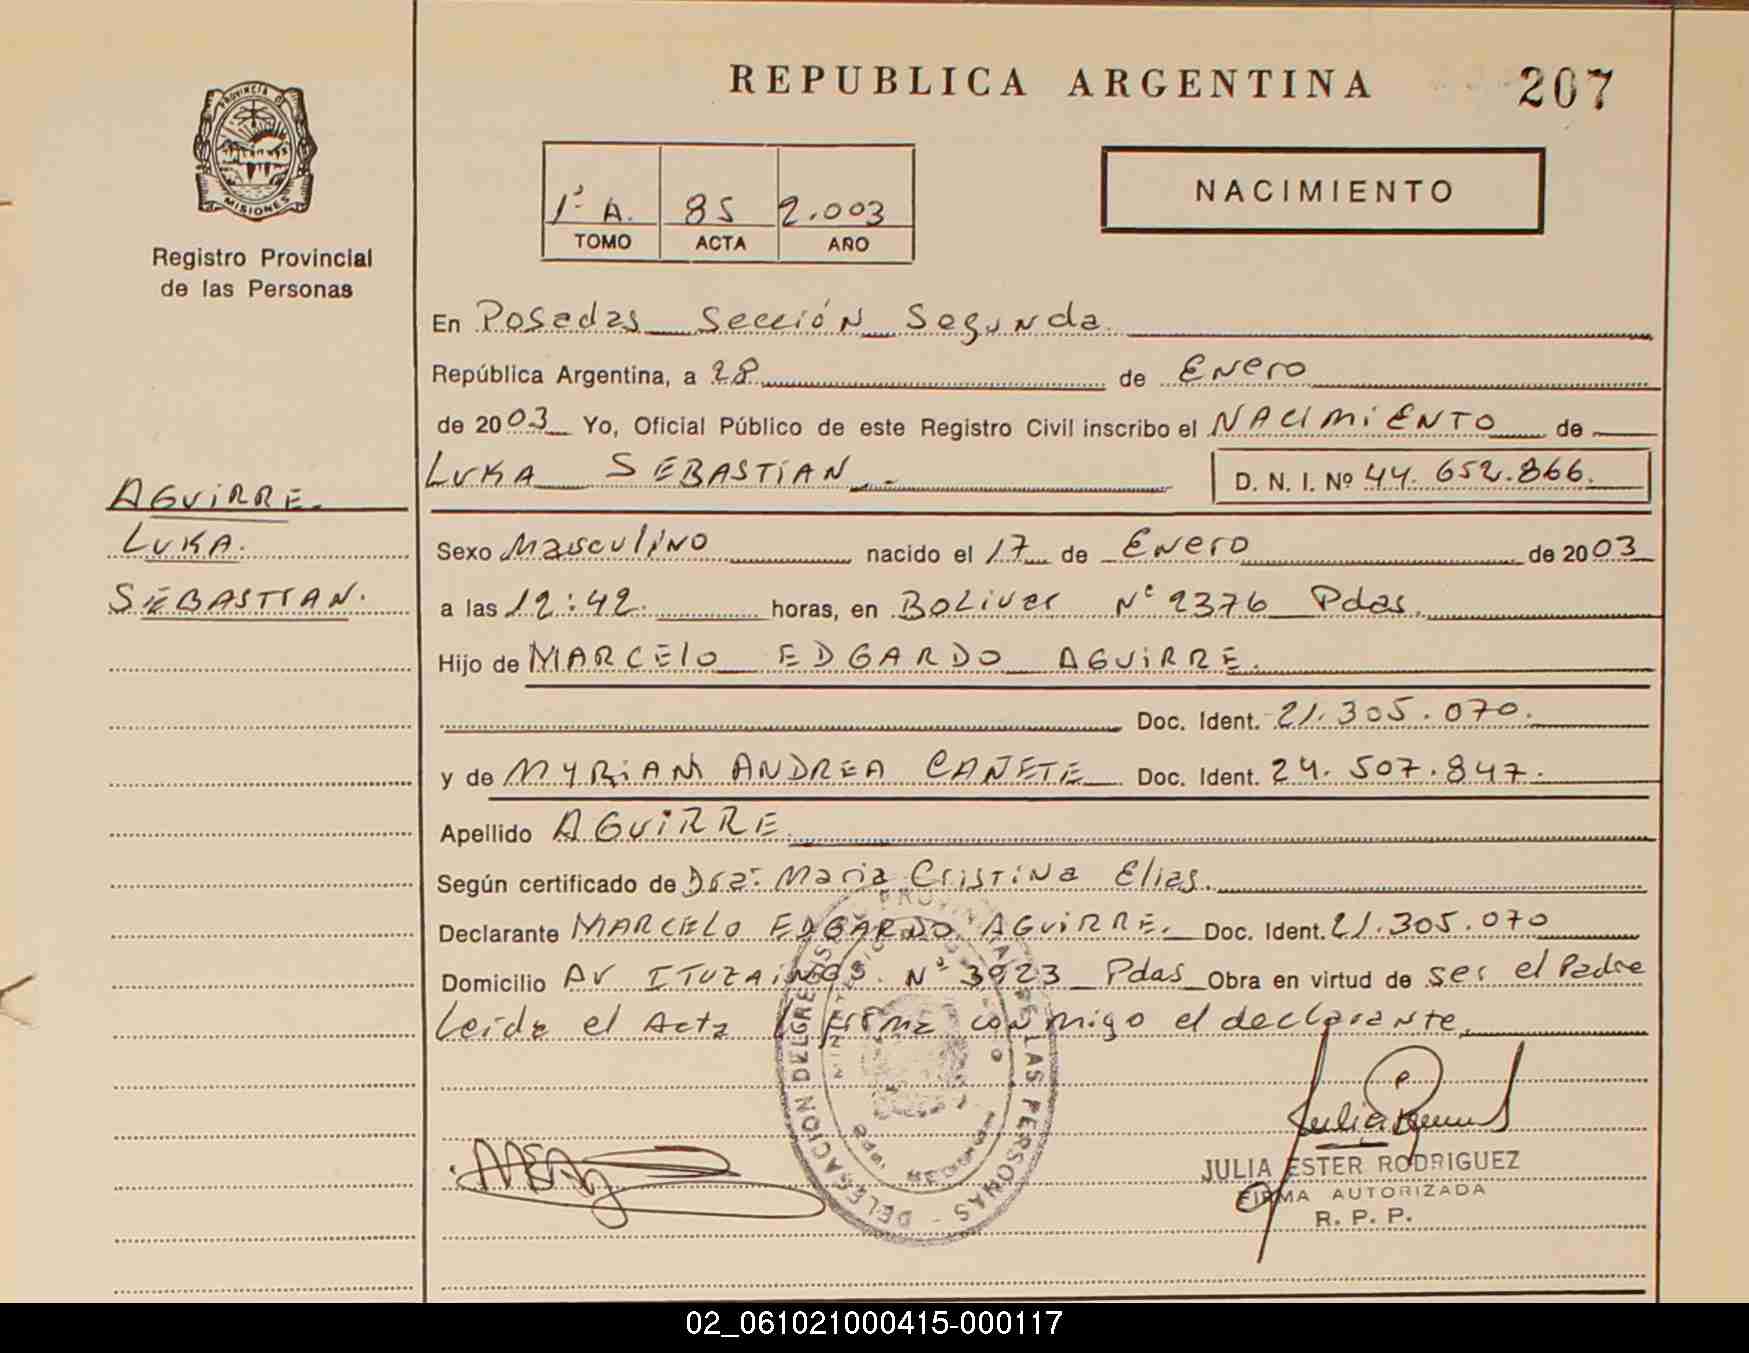 REPUBLICA ARGENTINA
207
PROVINCIA DE
MISIONES
Registro Provincial
de las Personas
1ª A. 85 2.003
TOMO ACTA AÑO
NACIMIENTO
En Posadas Sección Segunda.
República Argentina, a 28 de Enero
de 2003 Yo, Oficial Público de este Registro Civil inscribo el NACIMIENTO de
LUKA SEBASTIAN D. N. I. Nº 44.652.866.
AGUIRRE.
LUKA.
SEBASTIAN.
Sexo Masculino nacido el 17 de Enero de 2003
a las 12:42. horas, en Bolivar Nº 2376 Pdas.
Hijo de MARCELO EDGARDO AGUIRRE.
Doc. Ident. 21.305.070.
y de MYRIAM ANDREA CANETE Doc. Ident. 24.507.847.
Apellido AGUIRRE.
Según certificado de Dra. Maria Cristina Elias.
Declarante MARCELO EDGARDO AGUIRRE. Doc. Ident. 21.305.070
Domicilio AV ITUZAINGO. Nº 3923 Pdas Obra en virtud de ser el Padre
Leida el Acta firma conmigo el declarante.
DELEGACION DEL REGISTRO PROVINCIAL DE LAS PERSONAS
MINISTERIO DE GOBIERNO
JULIA ESTER RODRIGUEZ
FIRMA AUTORIZADA
R. P. P.
02_061021000415-000117